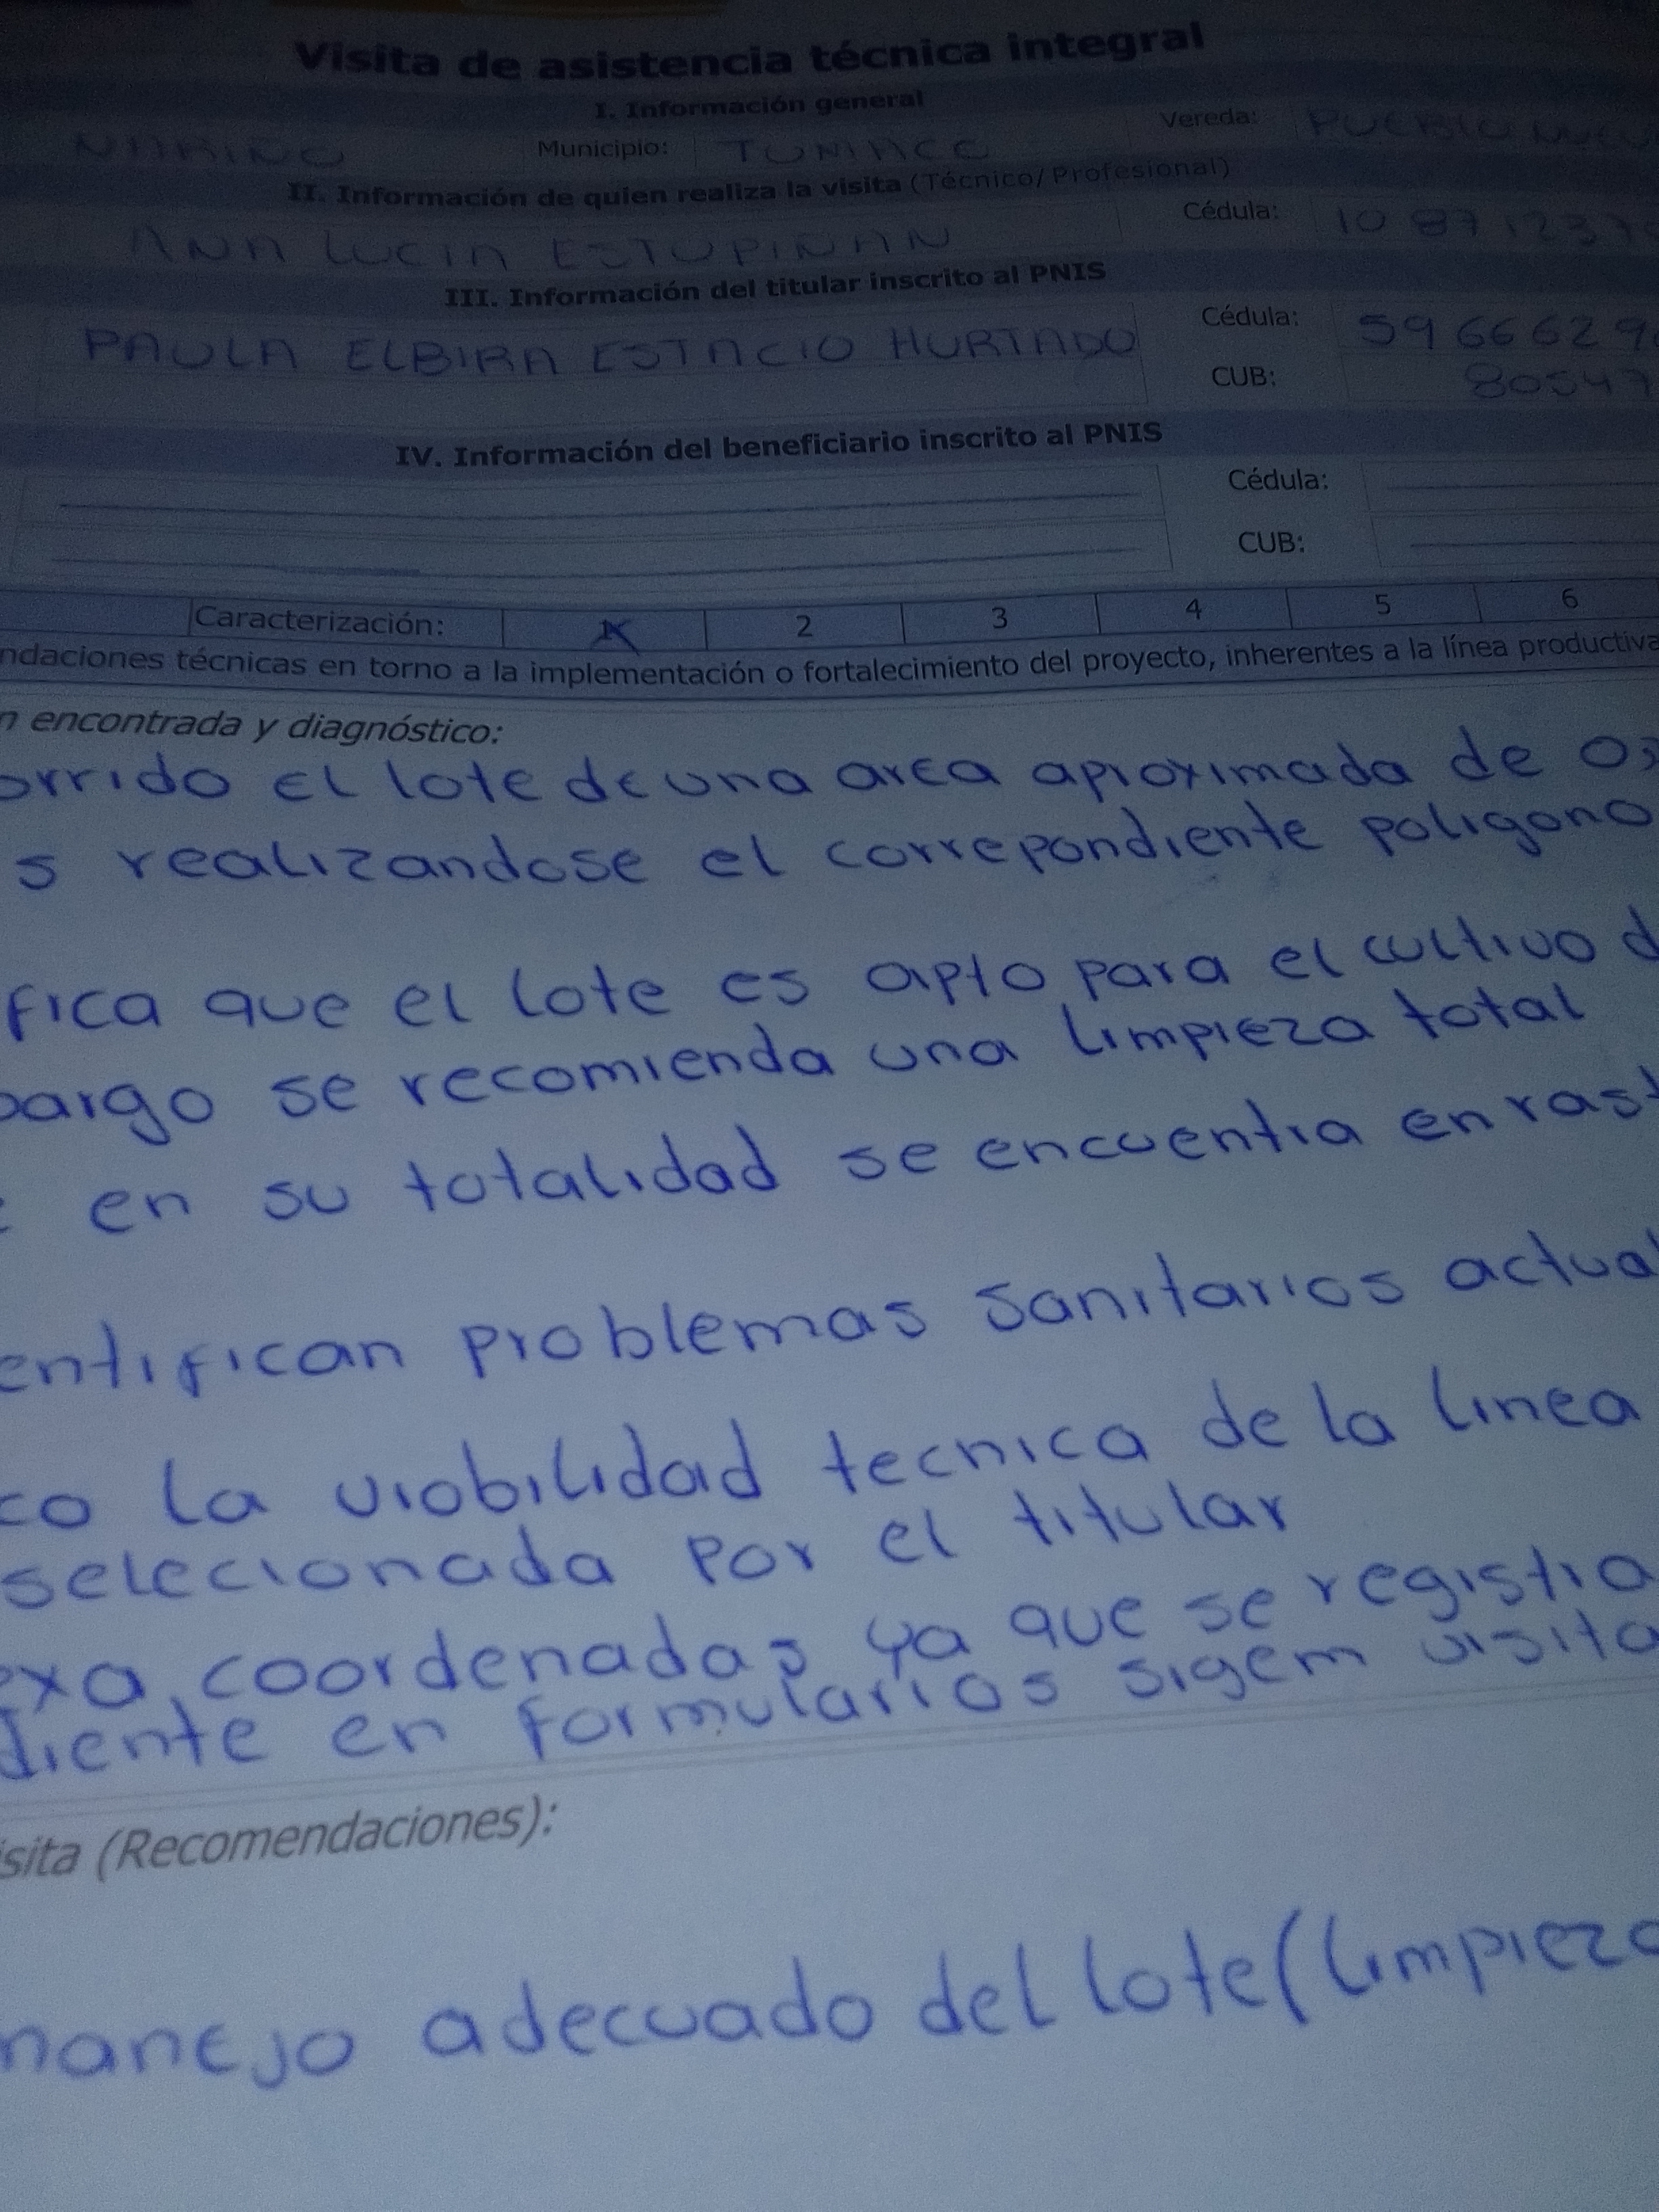 Visita de asistencia técnica integral
I. Información general
NARIÑO Municipio: TUMACO Vereda: PUEBLO NUEV
II. Información de quien realiza la visita (Técnico/Profesional)
ANA LUCIA ESTUPIÑAN Cédula: 10 871237
III. Información del titular inscrito al PNIS
PAULA ELBIRA ESTACIO HURTADO Cédula: 5966629
CUB: 80547
IV. Información del beneficiario inscrito al PNIS
Cédula:
CUB:
Caracterización: 1 2 3 4 5 6
ndaciones técnicas en torno a la implementación o fortalecimiento del proyecto, inherentes a la línea productiva
n encontrada y diagnóstico:
orrido el lote de una area aproximada de 0,
s realizandose el correpondiente poligono
fica que el lote es apto para el cultivo d
bargo se recomienda una limpieza total
en su totalidad se encuentra en rast
entifican problemas sanitarios actual
co la viabilidad tecnica de la linea
selecionada por el titular
exa, coordenadas ya que se registra
diente en formularios sigem visita
isita (Recomendaciones):
manejo adecuado del lote (limpieza